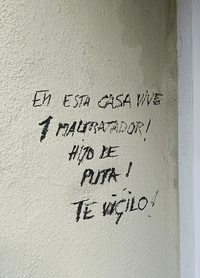 EN ESTA CASA VIVE
1 MALTRATADOR!
HIJO DE
PUTA!
TE VIGILO!